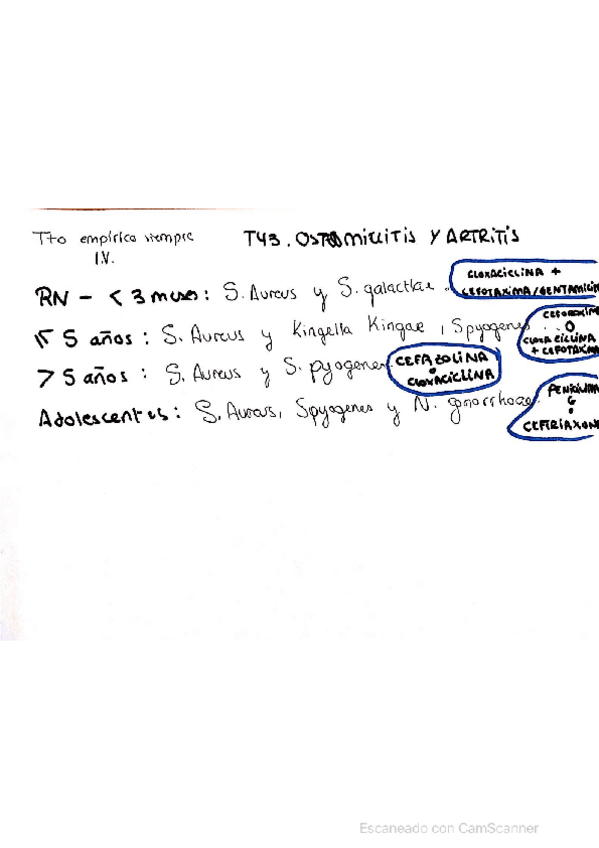 Tto empírico siempre I.V.
T43. OSTEOMIELITIS Y ARTRITIS
RN - < 3 meses: S. Aureus y S. galactiae
CLOXACICLINA + CEFOTAXIMA/GENTAMICIN
< 5 años: S. Aureus y Kingella Kingae, S pyogenes..
CEFUROXIM
O
CLOXACICLINA
+ CEFOTAXIMA
> 5 años: S. Aureus y S. pyogenes.
CEFAZOLINA
o
CLOXACICLINA
Adolescentes: S. Aureus, S pyogenes y N. gonorrhoae.
PENICILINA
G
o
CEFTRIAXON
Escaneado con CamScanner